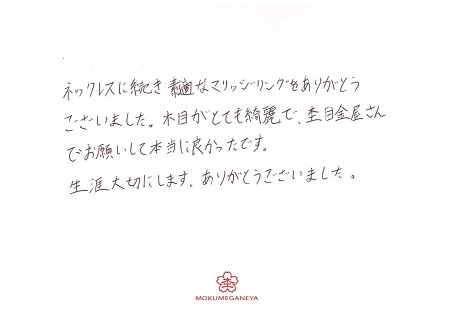 ネックレスに続き素適なマリッジリングをありがとう
ございました。木目がとても綺麗で、杢目金屋さん
でお願いして本当に良かったです。
生涯大切にします。ありがとうございました。
杢
MOKUMEGANEYA